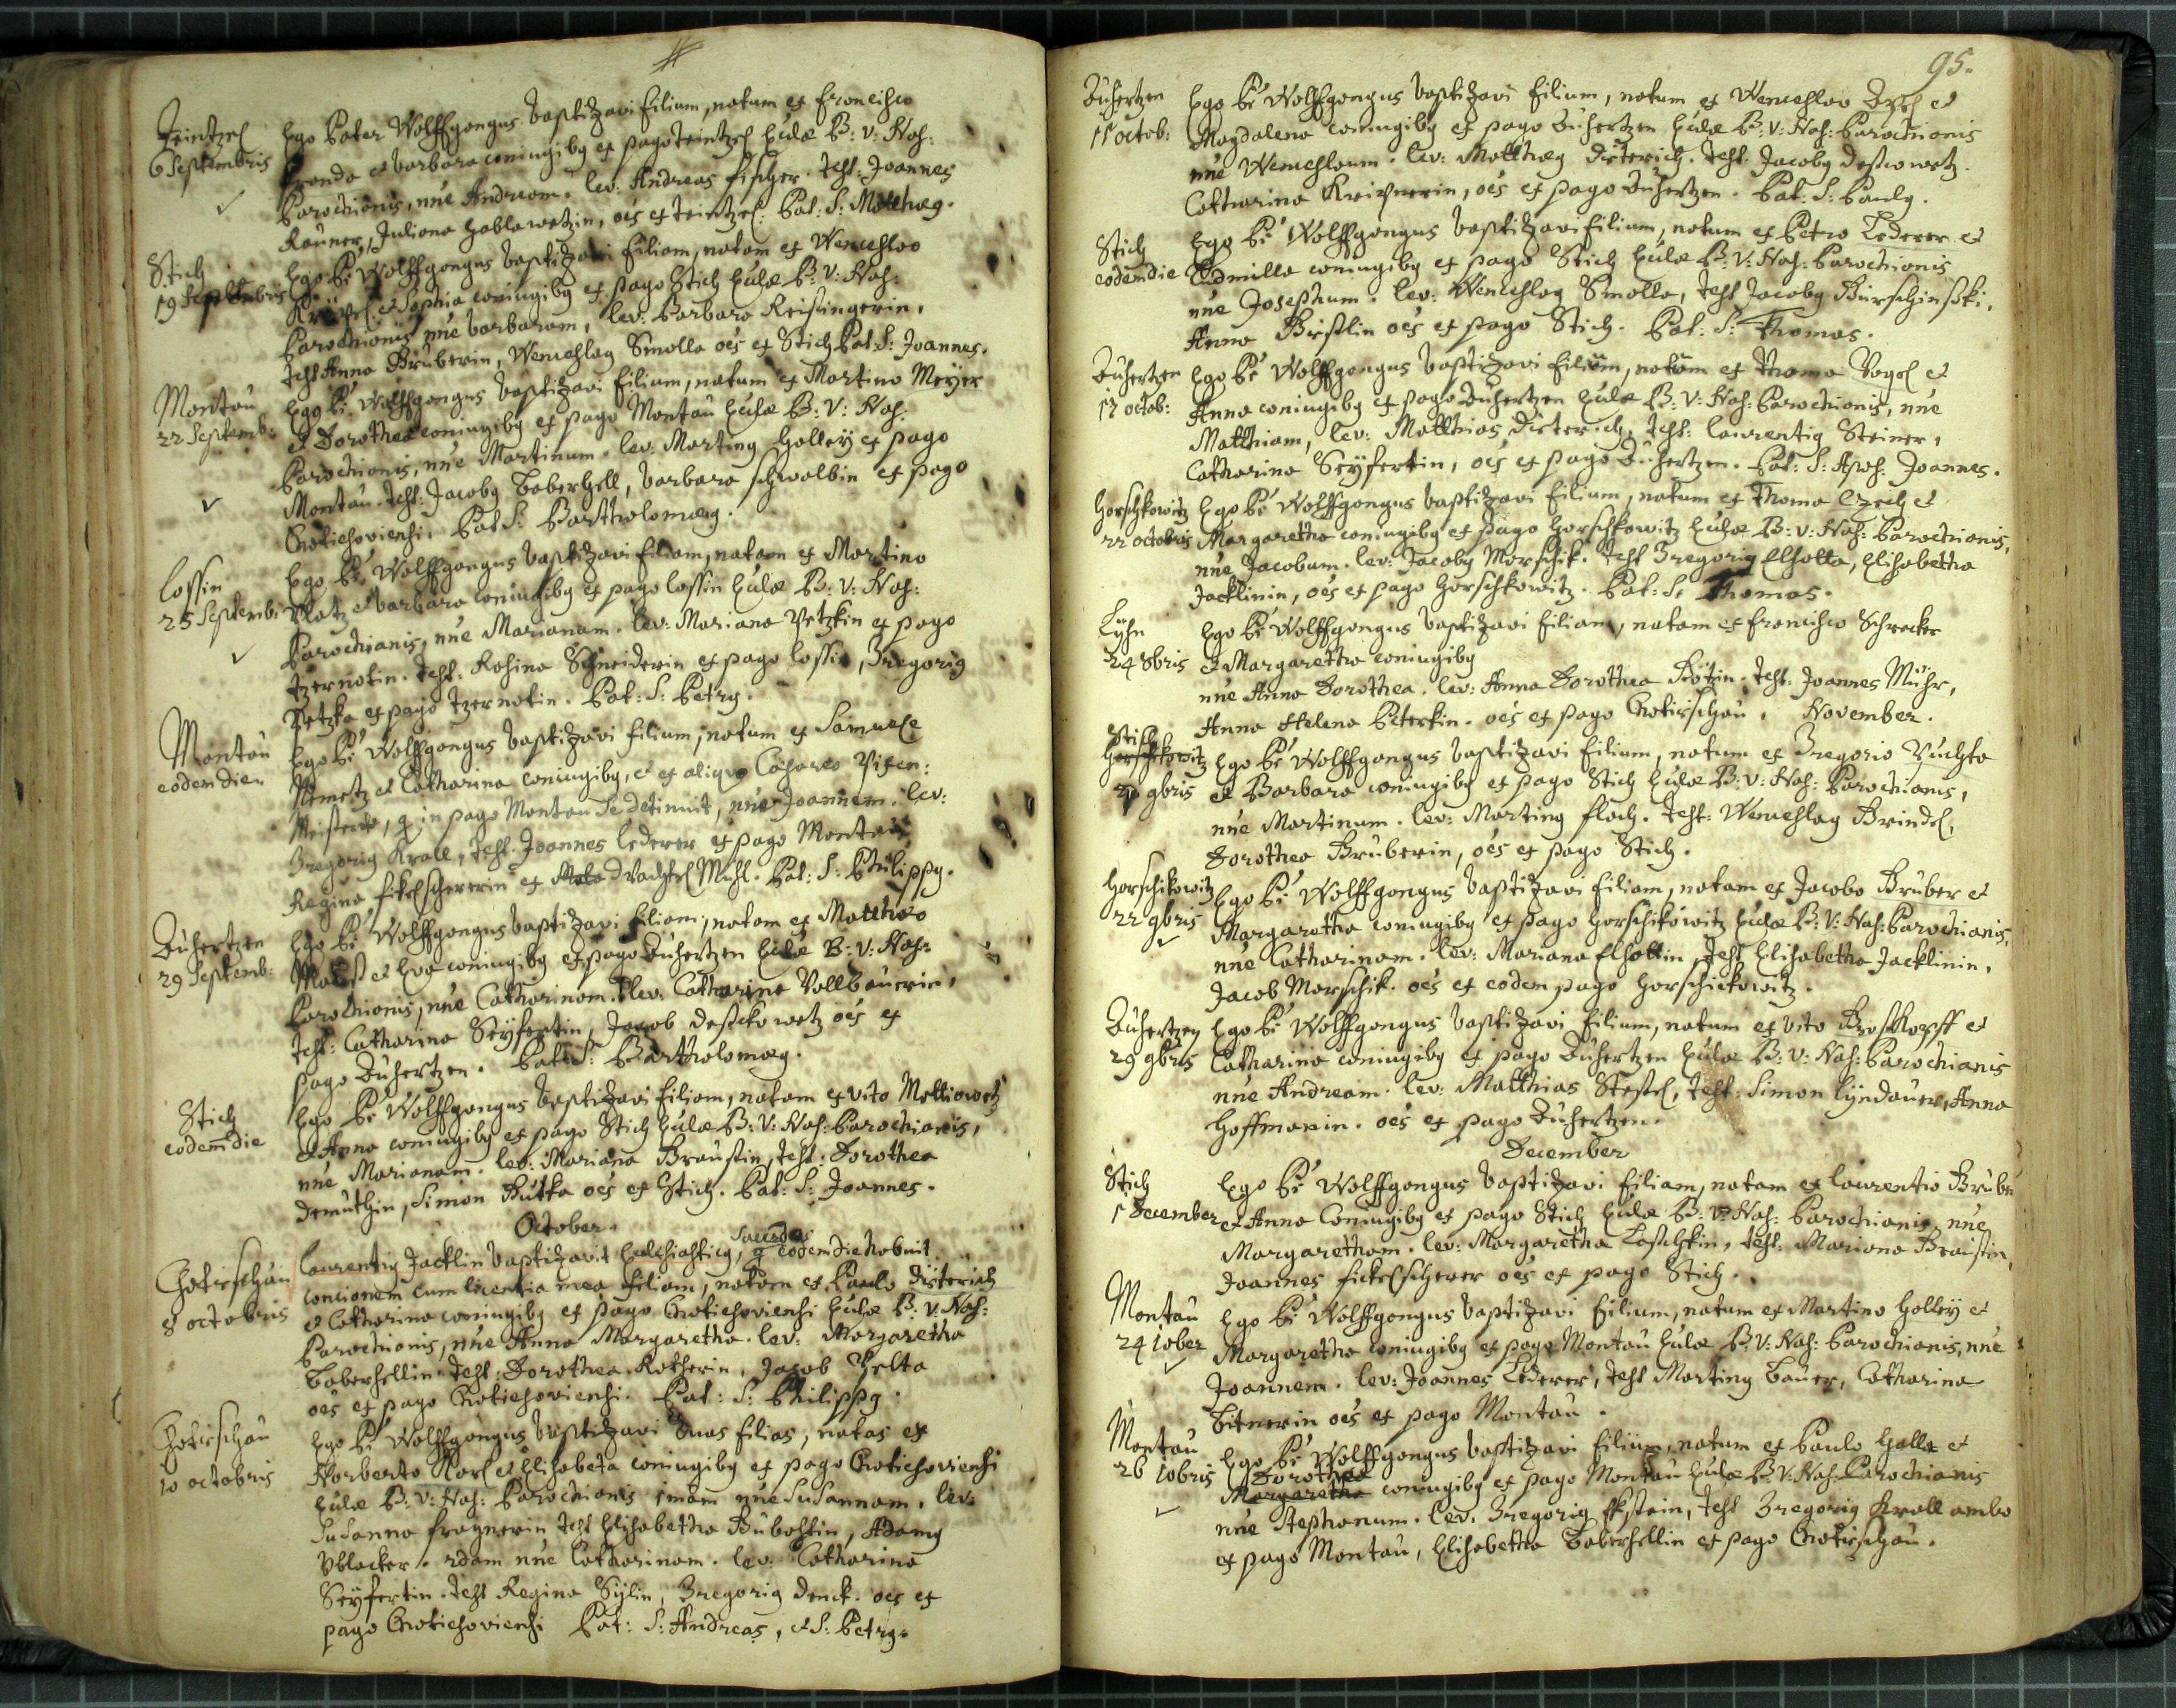 Teintzel
6 Septembris
Ego Pater Wolffgangus baptizavi filium, natum ex Francisco
et Barbara coniugibg ex pago Teintzel Eulae B: V: Nas:
Parochianis, nne Andream. lev: Andreas Fischer. test: Joannes
Rauner, Juliana Hablawetzin, oes ex Teintzel. Pat: S: Matthaeg.
Stich
19 Septembris
Ego Pr Wolffgangus baptizavi filiam, natam ex Wenceslao
et Sophia coniugibg ex pago Stich Eulae B: V: Nas:
Parochianis nne Barbaram, lev: Barbara Reisingerin,
test Anna Bruberin, Wenceslag Smolla oes ex Stich Pat: S: Joannes.
Montau
22 Septemb:
Ego Pr. Wolffgangus baptizavi filium, natum ex Martino Meyer
et Dorothea coniugibg ex pago Montau Eulae B: V: Nas:
Parochianis, nne Martinum. lev: Marting Holley ex pago
Montau. test: Jacobg Haberzell, Barbara Schwalbin ex pago
Chotieschoviensi, Pat S: Bartholomaeg.
Lossin
25 Septembr
Ego Pr Wolffgangus baptizavi filiam, natam ex Martino
Platz et Barbara coniugibg ex pago Lossin Eulae B: V: Nas:
Parochianis, nne Marianam. lev: Mariana Petzkin ex pago
Tzernotin. test: Rosina Schneiderin ex pago Lossin, Gregorig
Petzka ex pago Tzernotin. Pat: S: Petrg.
Montau
eodem die.
Ego Pr Wolffgangus baptizavi filium, natum ex Samuele
Nemetz et Catharina coniugibg, et ex aliquo Caesareo
in pago Montau se detinuit, nne Joannem. lev:
Gregorig Krall, test: Joannes Lederer ex pago Montau
Regina Fickelschererin ex Wachtel Muhl. Pat: S: Philippg.
Duhertzen
29 Septemb:
Ego Pr Wolffgangus baptizavi filiam, natam ex Matthaeo
et Eva coniugibg ex pago Duhertzen Eulae B: V: Nas:
Parochianis, nne Catharinam. lev: Catharina Vollbauerin,
test: Catharina Seyfertin, Jacob Deschowetz oes ex
pago Duhertzen. Pat: S: Bartholomaeg.
Stich
eodem die
Ego Pr Wolffgangus baptizavi filiam, natam ex Vito Mattiowetz
et Anna coniugibg ex pago Stich Eulae B: V: Nas: Parochianis,
nne Marianam. lev: Mariana Braustin, test: Dorothea
Demuthin, Simon Butka oes ex Stich. Pat: S: Joannes.
October.
Chotieschau
8 octobris
Laurentig Jacklin baptizavit Ecclesiasticg, q eodem die habuit
concionem cum licentia mea filiam, natam ex Paulo Dieterich
et Catharina coniugibg ex pago Chotieschoviensi Eulae B: V: Nas:
Parochianis, nne Anna Margaretha. lev: Margaretha
Haberzellin. test: Dorothea Rotherin, Jacob Pelta
oes ex pago Chotieschoviensi. Pat: S: Philippg.
Chotieschau
10 octobris
Ego Pr Wolffgangus baptizavi duas filias, natas ex
Norberto Karl et Elisabeta coniugibg ex pago Chotieschoviensi
Eulae B: V: Nas: Parochianis 1mam nne Susannam. lev:
Susanna Fragnerin test Elisabetha Bubostin, Adamg
Vblacker. 2dam nne Catharinam. lev: Catharina
Seyfertin. test Regina Sylin, Gregorig Denck. oes ex
pago Chotieschoviensi Pat: S: Andreas, et S: Petrg.
95.
Duhertzen
11 octob:
Ego Pr Wolffgangus baptizavi filium, natum ex Wenceslao et
Magdalena coniugibg ex pago Duhertzen Eulae B: V: Nas: Parochianis
nne Wenceslaum. lev: Matthaeg Dieterich. test: Jacobg Deschowetz.
Catharina oes ex pago Duhertzen. Pat: S: Paulg.
Stich
eodem die
Ego Pr Wolffgangus baptizavi filium, natum ex Petro Lederer et
Ludmilla coniugibg ex pago Stich Eulae B: V: Nas: Parochianis
nne Josephum. lev: Wenceslag Smolla, test Jacobg Burschinski,
Anna oes ex pago Stich. Pat: S: Thomas.
Duhertzen
17 octob:
Ego Pr Wolffgangus baptizavi filium, natum ex Thoma Vogel et
Anna coniugibg ex pago Duhertzen Eulae B: V: Nas: Parochianis, nne
Matthiam, lev: Matthias Dieterich, test: Laurentig Steiner,
Catharina Seyfertin, oes ex pago Duhertzen. Pat: S: Apos: Joannes.
Horschkowitz
22 octobris
Ego Pr Wolffgangus baptizavi filium, natum ex Thoma Czech et
Margaretha coniugibg ex pago Horschkowitz Eulae B: V: Nas: Parochianis,
nne Jacobum. lev: Jacobg Morschik. test Gregorig Elhotta, Elisabetha
Jacklinin, oes ex pago Horschkowitz. Pat: S: Thomas.
24 8bris
Ego Pr Wolffgangus baptizavi filiam, natam ex Francisco Schrecker
et Margaretha coniugibg
nne Anna Dorothea. lev: Anna Dorothea test: Joannes Muhr,
Anna Helena Peterkin. oes ex pago Chotieschau. November.
Stich
Horschkowitz
9bris
Ego Pr Wolffgangus baptizavi filium, natum ex Gregorio Vuchta
et Barbara coniugibg ex pago Stich Eulae B: V: Nas: Parochianis,
nne Martinum. lev: Marting Floch. test: Wenceslag Breindl,
Dorothea Bruberin, oes ex pago Stich.
Horschikowitz
22 9bris
Ego Pr Wolffgangus baptizavi filiam, natam ex Jacobo Bruber et
Margaretha coniugibg ex pago Horschikowitz Eulae B: V: Nas: Parochianis,
nne Catharinam. lev: Mariana Elhottin, test Elisabetha Jacklinin,
Jacob Morschik. oes ex eodem pago Horschickowitz.
Duhertzen
29 9bris
Ego Pr Wolffgangus baptizavi filium, natum ex Vito et
Catharina coniugibg ex pago Duhertzen Eulae B: V: Nas: Parochianis
nne Andream. lev: Matthias test: Simon Lyndauer, Anna
Hoffmanin. oes ex pago Duhertzen.
December
Stich
1 December
Ego Pr Wolffgangus baptizavi filiam, natam ex Laurentio Bruber
et Anna Coniugibg ex pago Stich Eulae B: V: Nas: Parochianis, nne
Margaretham. lev: Margaretha Laschkin, test: Mariana Braustin,
Joannes Fickelscherer oes ex pago Stich.
Montau
24 10ber
Ego Pr Wolffgangus baptizavi filium, natum ex Martino Holley et
Margaretha coniugibg ex pago Montau Eulae B: V: Nas: Parochianis, nne
Joannem. lev: Joannes Lederer, test Marting Bauer, Catharina
Bitnerin oes ex pago Montau.
Montau
26 10bris
Ego Pr Wolffgangus baptizavi filium, natum ex Paulo Halla et
Dorothea
Margaretha coniugibg ex pago Montau Eulae B: V: Nas: Parochianis
nne Stephanum. lev. Gregorig Ekstein, test Gregorig Krall ambo
ex pago Montau, Elisabetha Haberzellin ex pago Chotieschau.